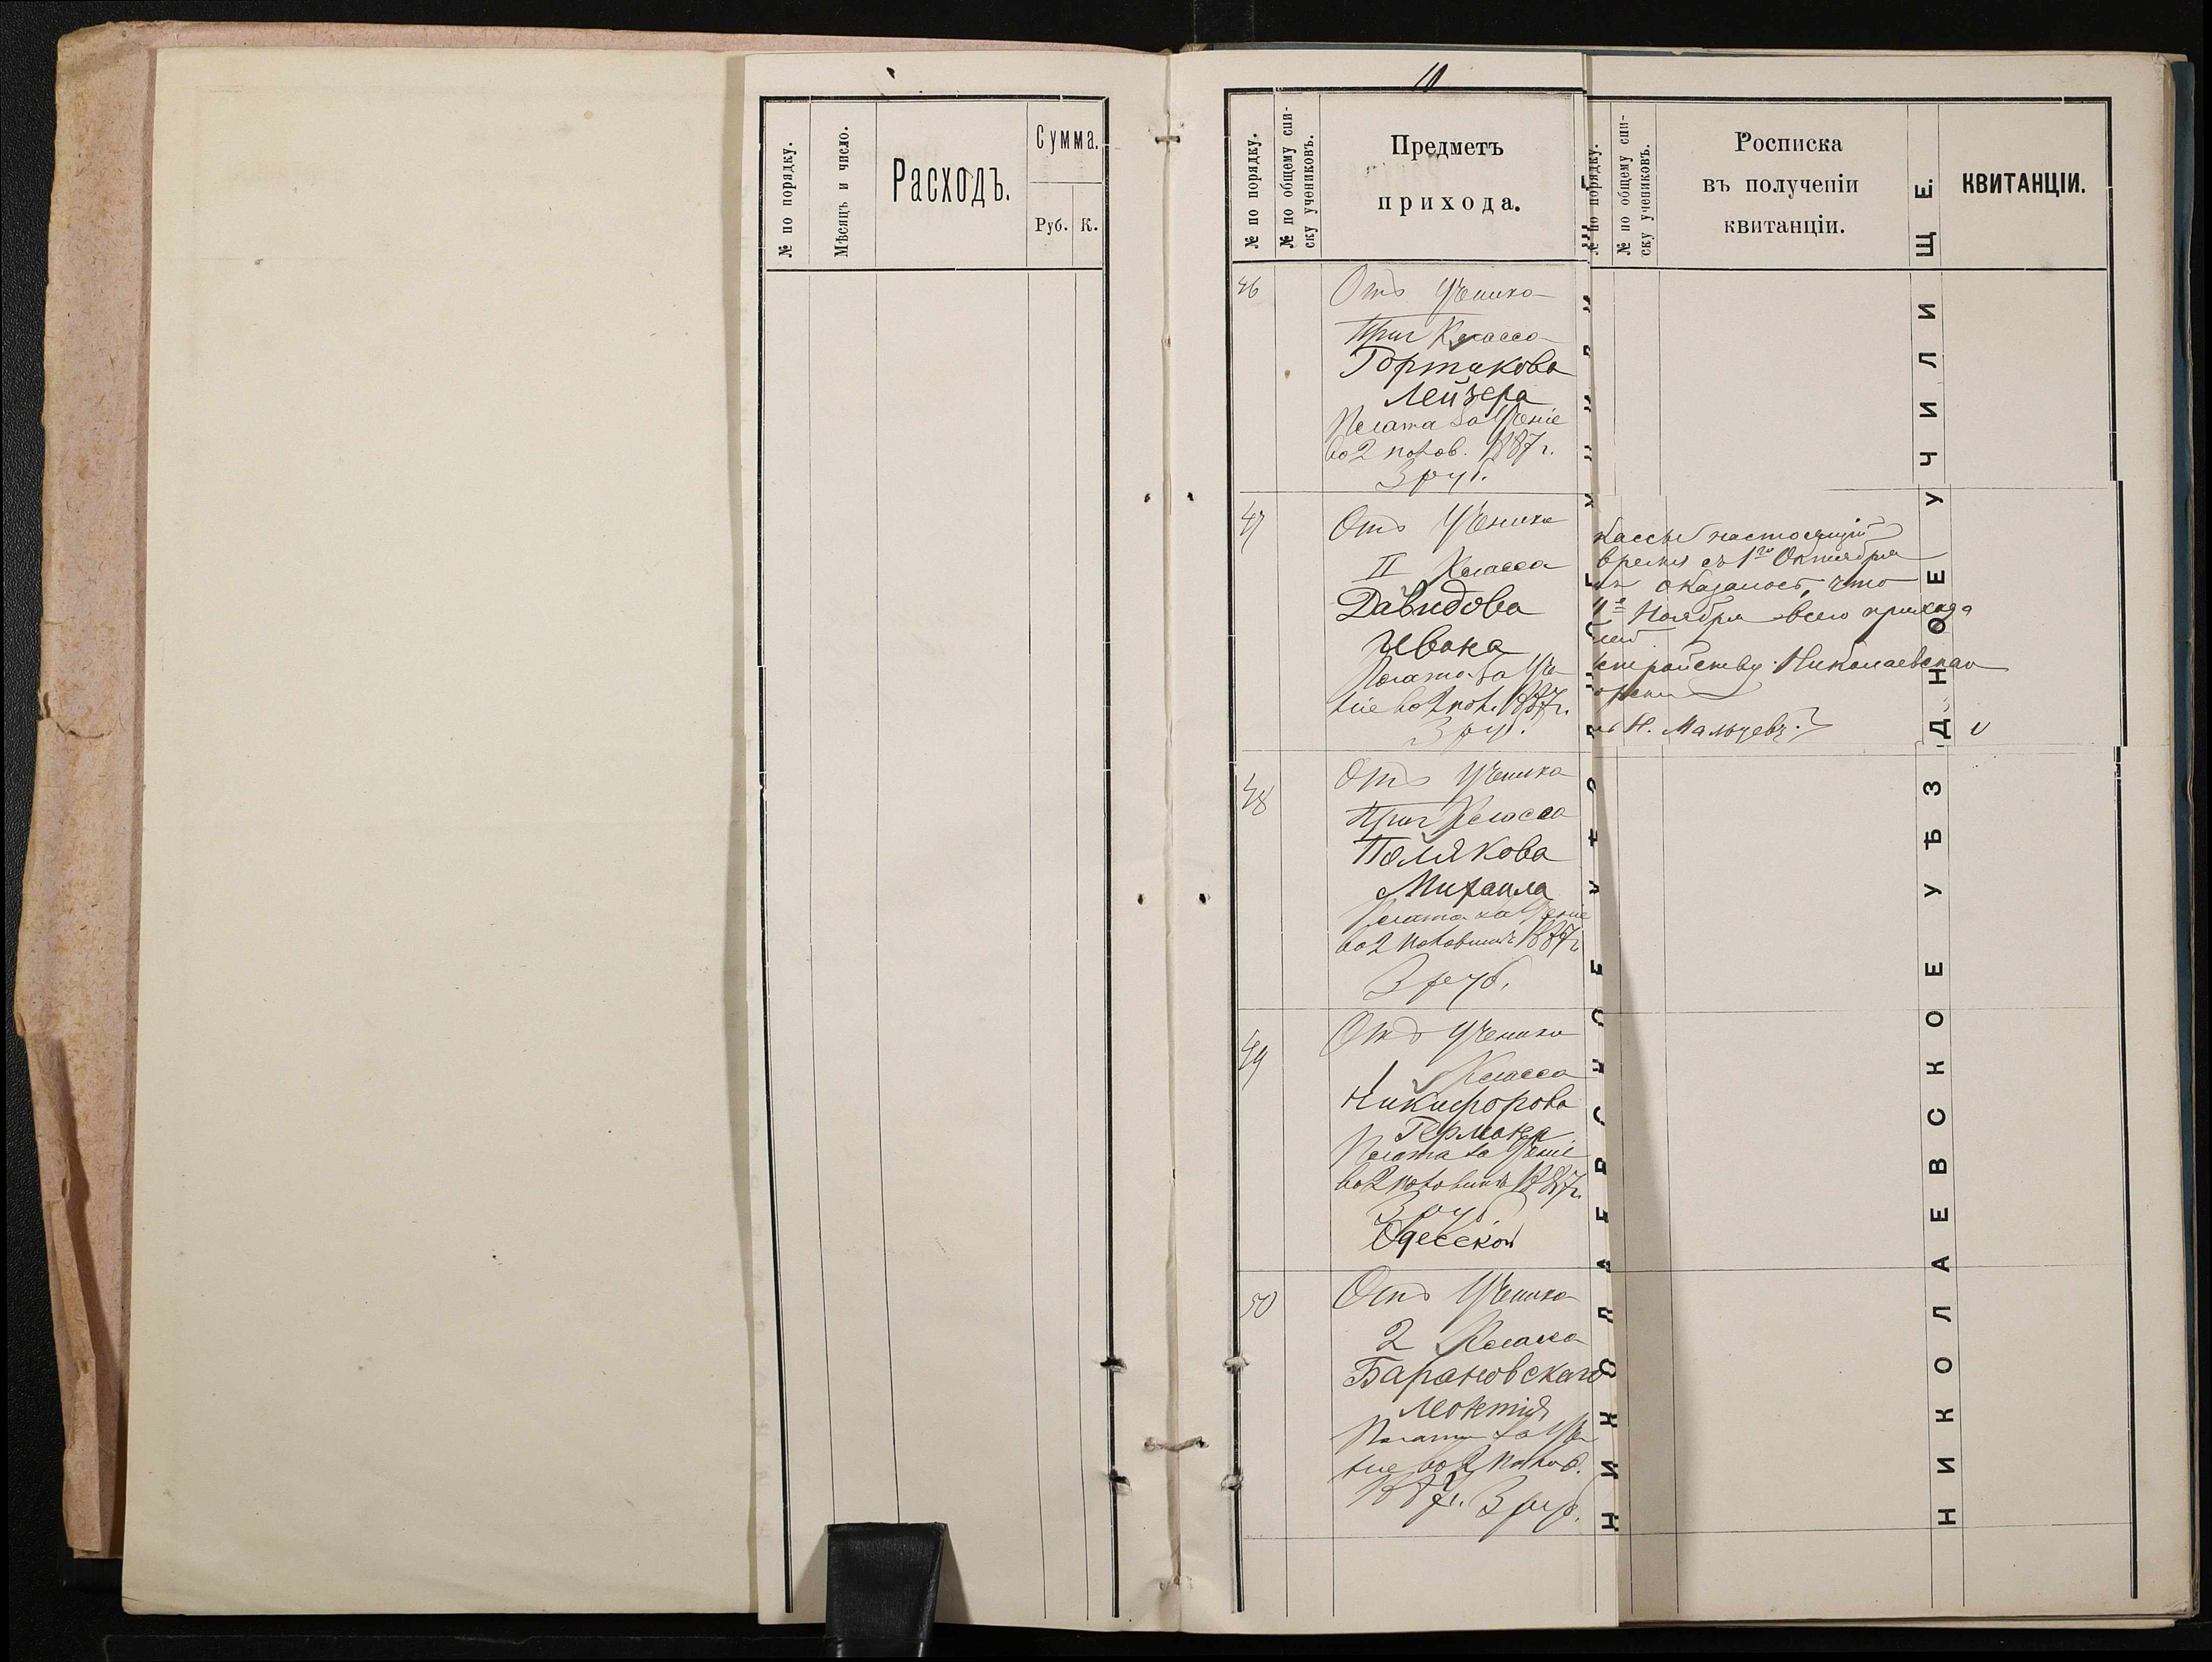 № по порядку.
Мѣсяцъ и число.
Расходъ.
Сумма.
Руб. К.
№ по порядку.
№ по общему спи-
ску учениковъ.
Предметъ
прихода.
46
Отъ Ученика
Приг Класса
Гортикова
Лейзера
Плата за Ученіе
во 2 полов. 1887 г.
3 руб.
47
Отъ Ученика
II Класса
Давидова
Ивана
Плата за Уче
ніе во 2 пол. 1887 г.
3 руб.
48
Отъ Ученика
Приг Класса
Полякова
Михаила
Плата за Ученіе
во 2 половинѣ 1887 г
3 руб.
49
Отъ Ученика
1 Класса
Никифорова
Германа
Плата за Ученіе
во 2 половинѣ 1887 г.
3 руб
Одесской
50
Отъ Ученика
2 Класса
Барановскаго
Леонтія
Плата за Уче
ніе во 2 полов.
1887 г. 3 руб.
№ по порядку.
№ по общему спи-
ску учениковъ.
Росписка
въ полученіи
квитанціи.
КВИТАНЦІИ.
кассы настоящій
время съ 1го Октября
оказалось, что
1е Ноября всего прихода
стройству Николаевская
Н. Мальцевъ.
НИКОЛАЕВСКОЕ УѢЗДНОЕ УЧИЛИЩЕ.